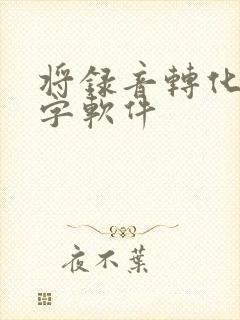 將錄音轉化
字軟件
夜不葉